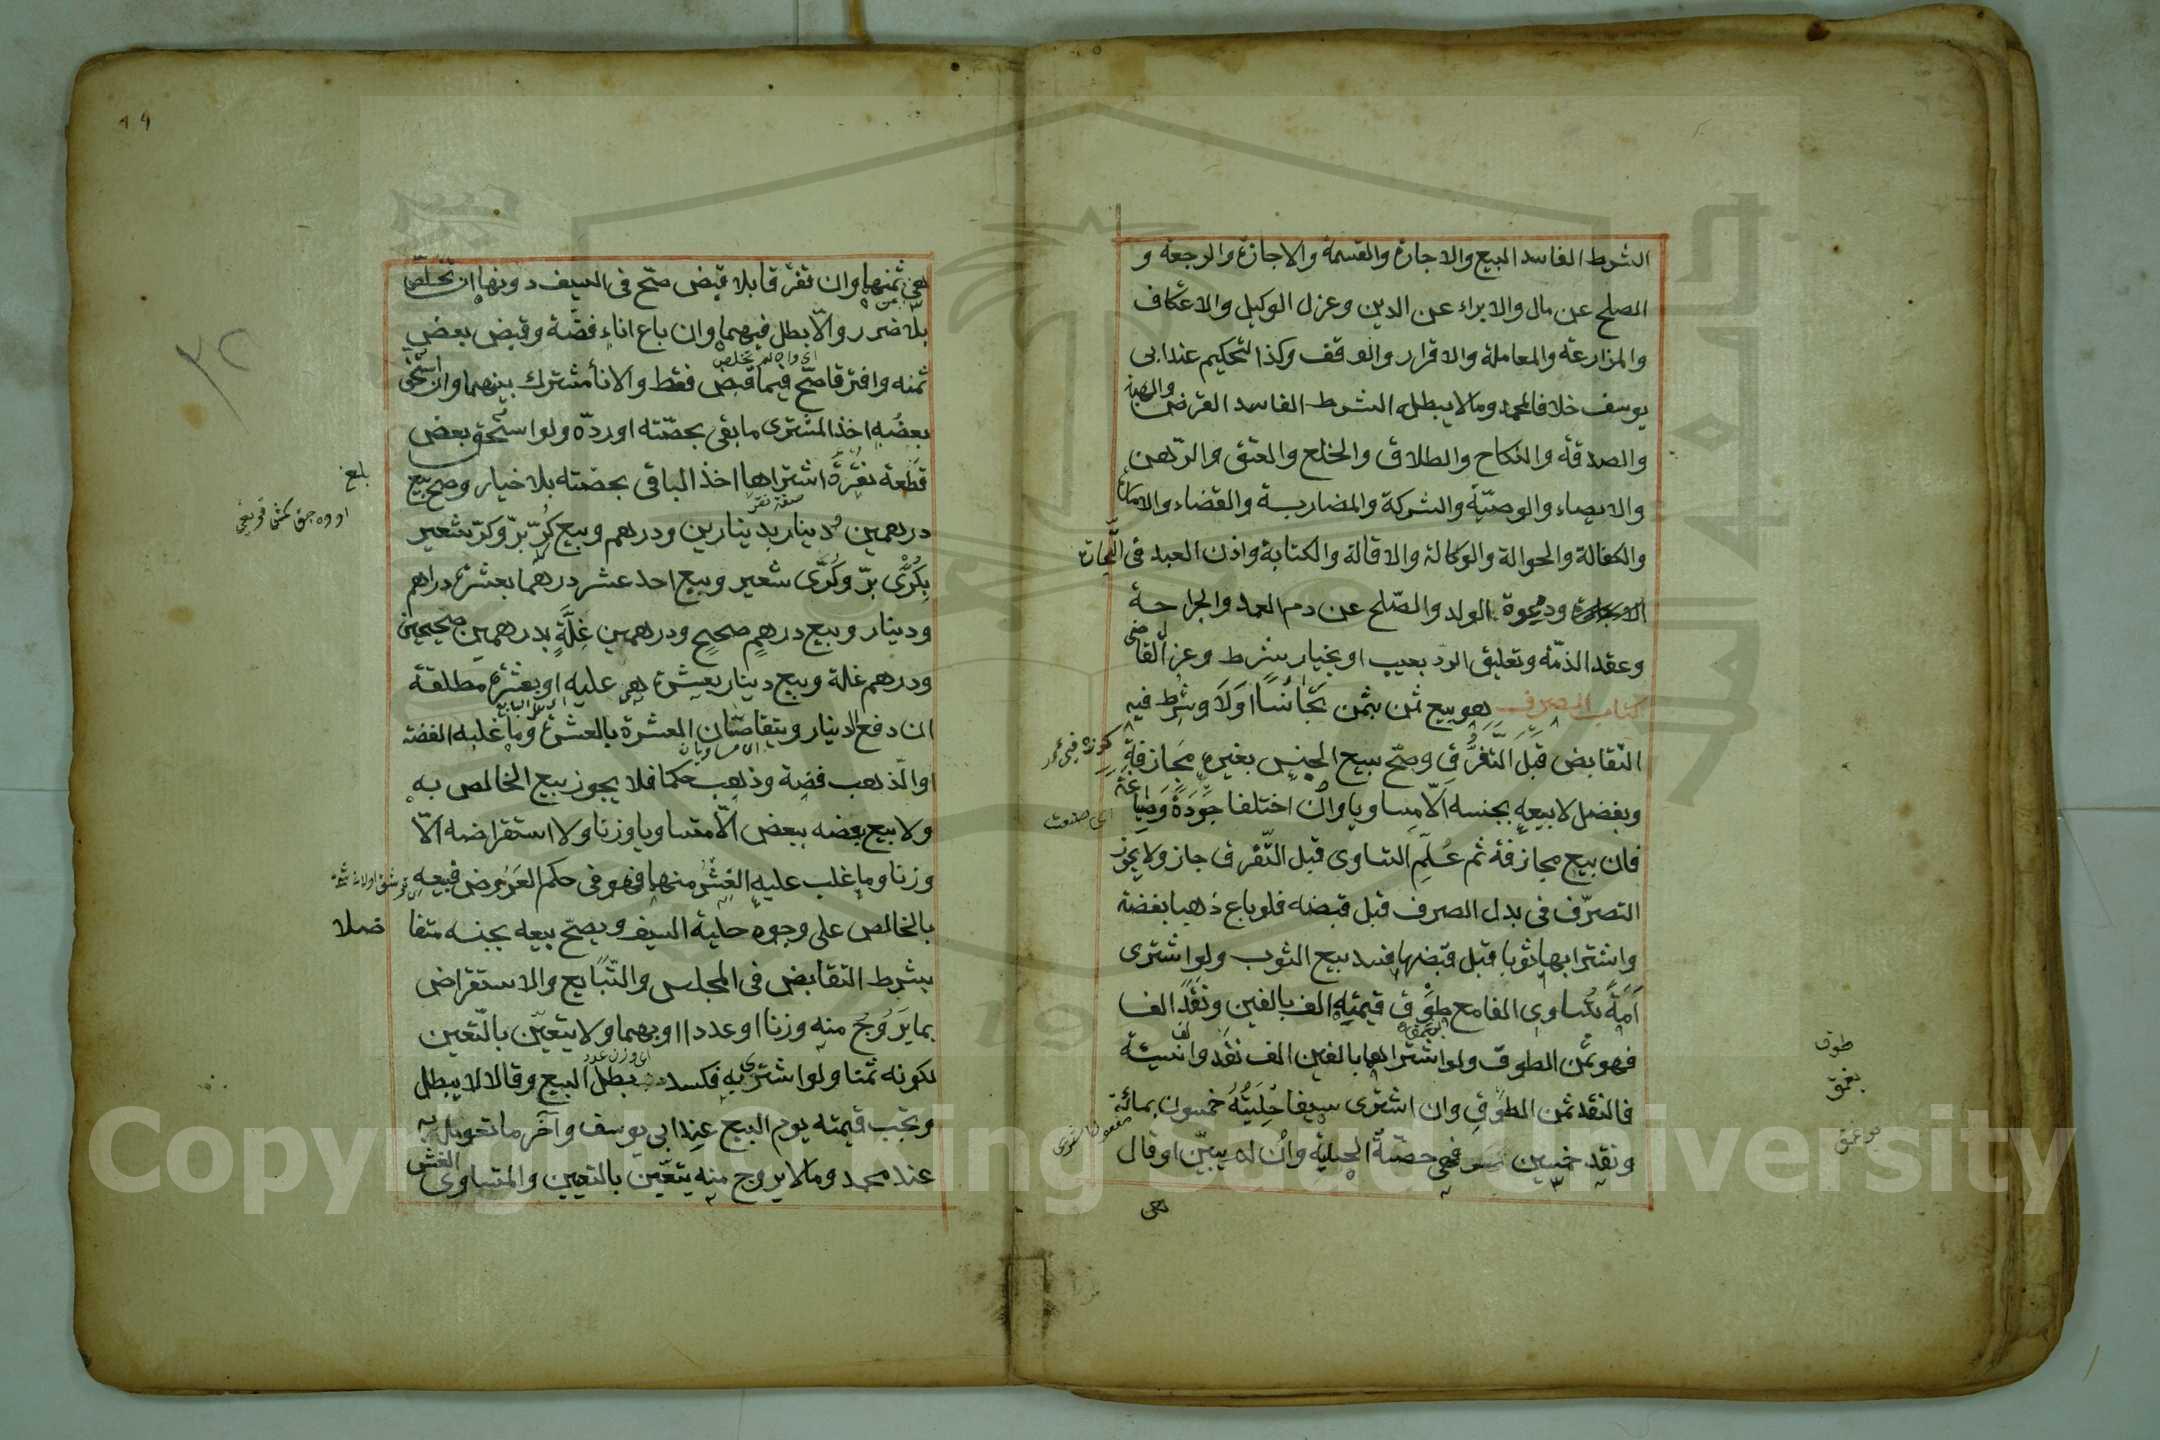 الشرط الفاسد البيع والاجارة والقسمة والاجازة والرجعة و
الصلح عن مال والابراء عن الدين وعزل الوكيل والاعتكاف
والمزارعة والمعاملة والاقرار والوقف وكذا التحكيم عند ابى
يوسف خلافا لمحمد ومالا يبطله الشرط الفاسد القرض والهبة
والصدقة والنكاح والطلاق والخلع والعتق والرّهن
والايصاء والوصيّة والشركة والمضاربة والقضاء والامارة
والكفالة والحوالة والوكالة والاقالة والكتابة واذن العبد فى التّجارة
ودعوة الولد والصّلح عن دم العمد والجراحة
وعقد الذمّة وتعليق الردّ بعيب او بخيار شرط وعزل القاضى
كتاب الصرف هو بيع ثمن بثمن تجانسا اولا وشرط فيه
التقابض قبل التّفرّق وصحّ بيع الجنس بغيره مجازفة
وبفضل لا بيعه بجنسه الّا متساويا وان اختلفا جودة وصياغة
فان بيع مجازفة ثم عُلم التساوى قبل التّفرق جاز ولا يجوز
التصرّف فى بدل الصرف قبل قبضه فلو باع ذهبا بفضة
واشترا بها ثوبا قبل قبضها فسد بيع الثوب ولو اشترى
امَة تساوى الفا مع طوق قيمته الف بالفين ونقد الفا
فهو ثمن الطوق ولو اشتراها بالفين الف نقد والف نسيئة
فالنقد ثمن الطوق وان اشترى سيفا حليته خمسون بمائة
ونقد خمسين فهى حصّة الحلية وان لم يبيّن او قال
هى
اى صنعت
طوق
٩٩
هى ثمنهما وان تفرّقا بلا قبض صحّ فى السيف دونها ان تخلّص
بلا ضرر والّا بطل فيهما وان باع اناء فضّة وقبض بعض
ثمنه وافترقا صحّ فيما قبض فقط والاناء مشترك بينهما وان استحق
بعضُه اخذ المشترى ما بقى بحصّته او ردّه ولو استحق بعض
قطعة نقرة اشتراها اخذ الباقى بحصّته بلا خيار وصح بيع
درهمين ودينار بدينارين ودرهم وبيع كُرّ برّ وكرّ شعير
بكُرّى برّ وكُرّى شعير وبيع احد عشر درهما بعشرة دراهم
ودينار وبيع درهمٍ صحيحٍ ودرهمين غلّةٍ بدرهمين صحيحين
ودرهم غلة وبيع دينار بعشرة هى عليه او بعشرة مطلقة
ان دفع الدينار ويتقاصّان العشرة بالعشرة وما غلبه الفضة
او الذهب فضة وذهب حكما فلا يجوز بيع الخالص به
ولا بيع بعضه ببعض الّا متساويا وزنا ولا استقراضه الّا
وزنا وما غلب عليه الغشّ منهما فهو فى حكم العروض فبيعه
بالخالص على وجوه حلية السيف ويصحّ بيعه بجنسه متفا ضلا
بشرط التقابض فى المجلس والتّبايع والاستقراض
بما يَرُوج منه وزنا او عددا او بهما ولا يتعيّن بالتّعين
لكونه ثمنا ولو اشترى به فكسد بطل البيع وقالا لا يبطل
وتجب قيمته يوم البيع عند ابى يوسف وآخر ما تعومل به
عند محمد وما لا يروج منه يتعيّن بالتعيين والمتساوى الغش
بلغ
٣٢
Copyright © King Saud University